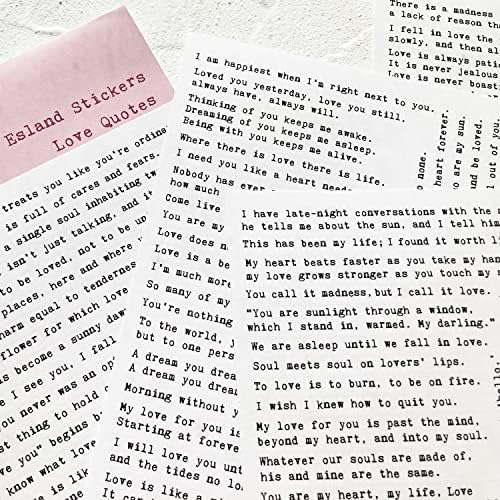 Esland Stickers
Love Quotes
treats you like you're ordina
is full of cares and fears.
a single soul inhabiting tw
isn't just talking, and it
to be loved, not to be u
places, here and where y
harm equal to tendernes
flower for which love
s become a sunny daw
I see you, I fall
you never was an op
st thing to hold o
ve you" begins b
know what love
e is lik
I am happiest when I'm right next to you.
Loved you yesterday, love you still,
always have, always will.
Thinking of you keeps me awake.
Dreaming of you keeps me asleep.
Being with you keeps me alive.
Where there is love there is life.
I need you like a heart needs
Nobody has ever
how much
Come live
You are my
Love does n
Love is a be
I'm much more
So many of my
You're nothing
To the world, y
but to one pers
A dream you drea
A dream you drea
Morning without y
My love for you is
Starting at forever
I will love you unt
and the tides no lo
Love is like a
It can
There is a madness
a lack of reason tha
I fell in love the
slowly, and then al
Love is always patie
It is never jealous
Love is never boasti
o none.
heart forever.
u are my sun.
and be loved.
l out of you.
I have late-night conversations with the
he tells me about the sun, and I tell him
This has been my life; I found it worth li
My heart beats faster as you take my han
my love grows stronger as you touch my
You call it madness, but I call it love.
"You are sunlight through a window,
which I stand in, warmed. My darling."
We are asleep until we fall in love.
Soul meets soul on lovers' lips.
To love is to burn, to be on fire.
I wish I knew how to quit you.
My love for you is past the mind,
beyond my heart, and into my soul.
Whatever our souls are made of,
his and mine are the same.
You are my heart, my life, my
hello!